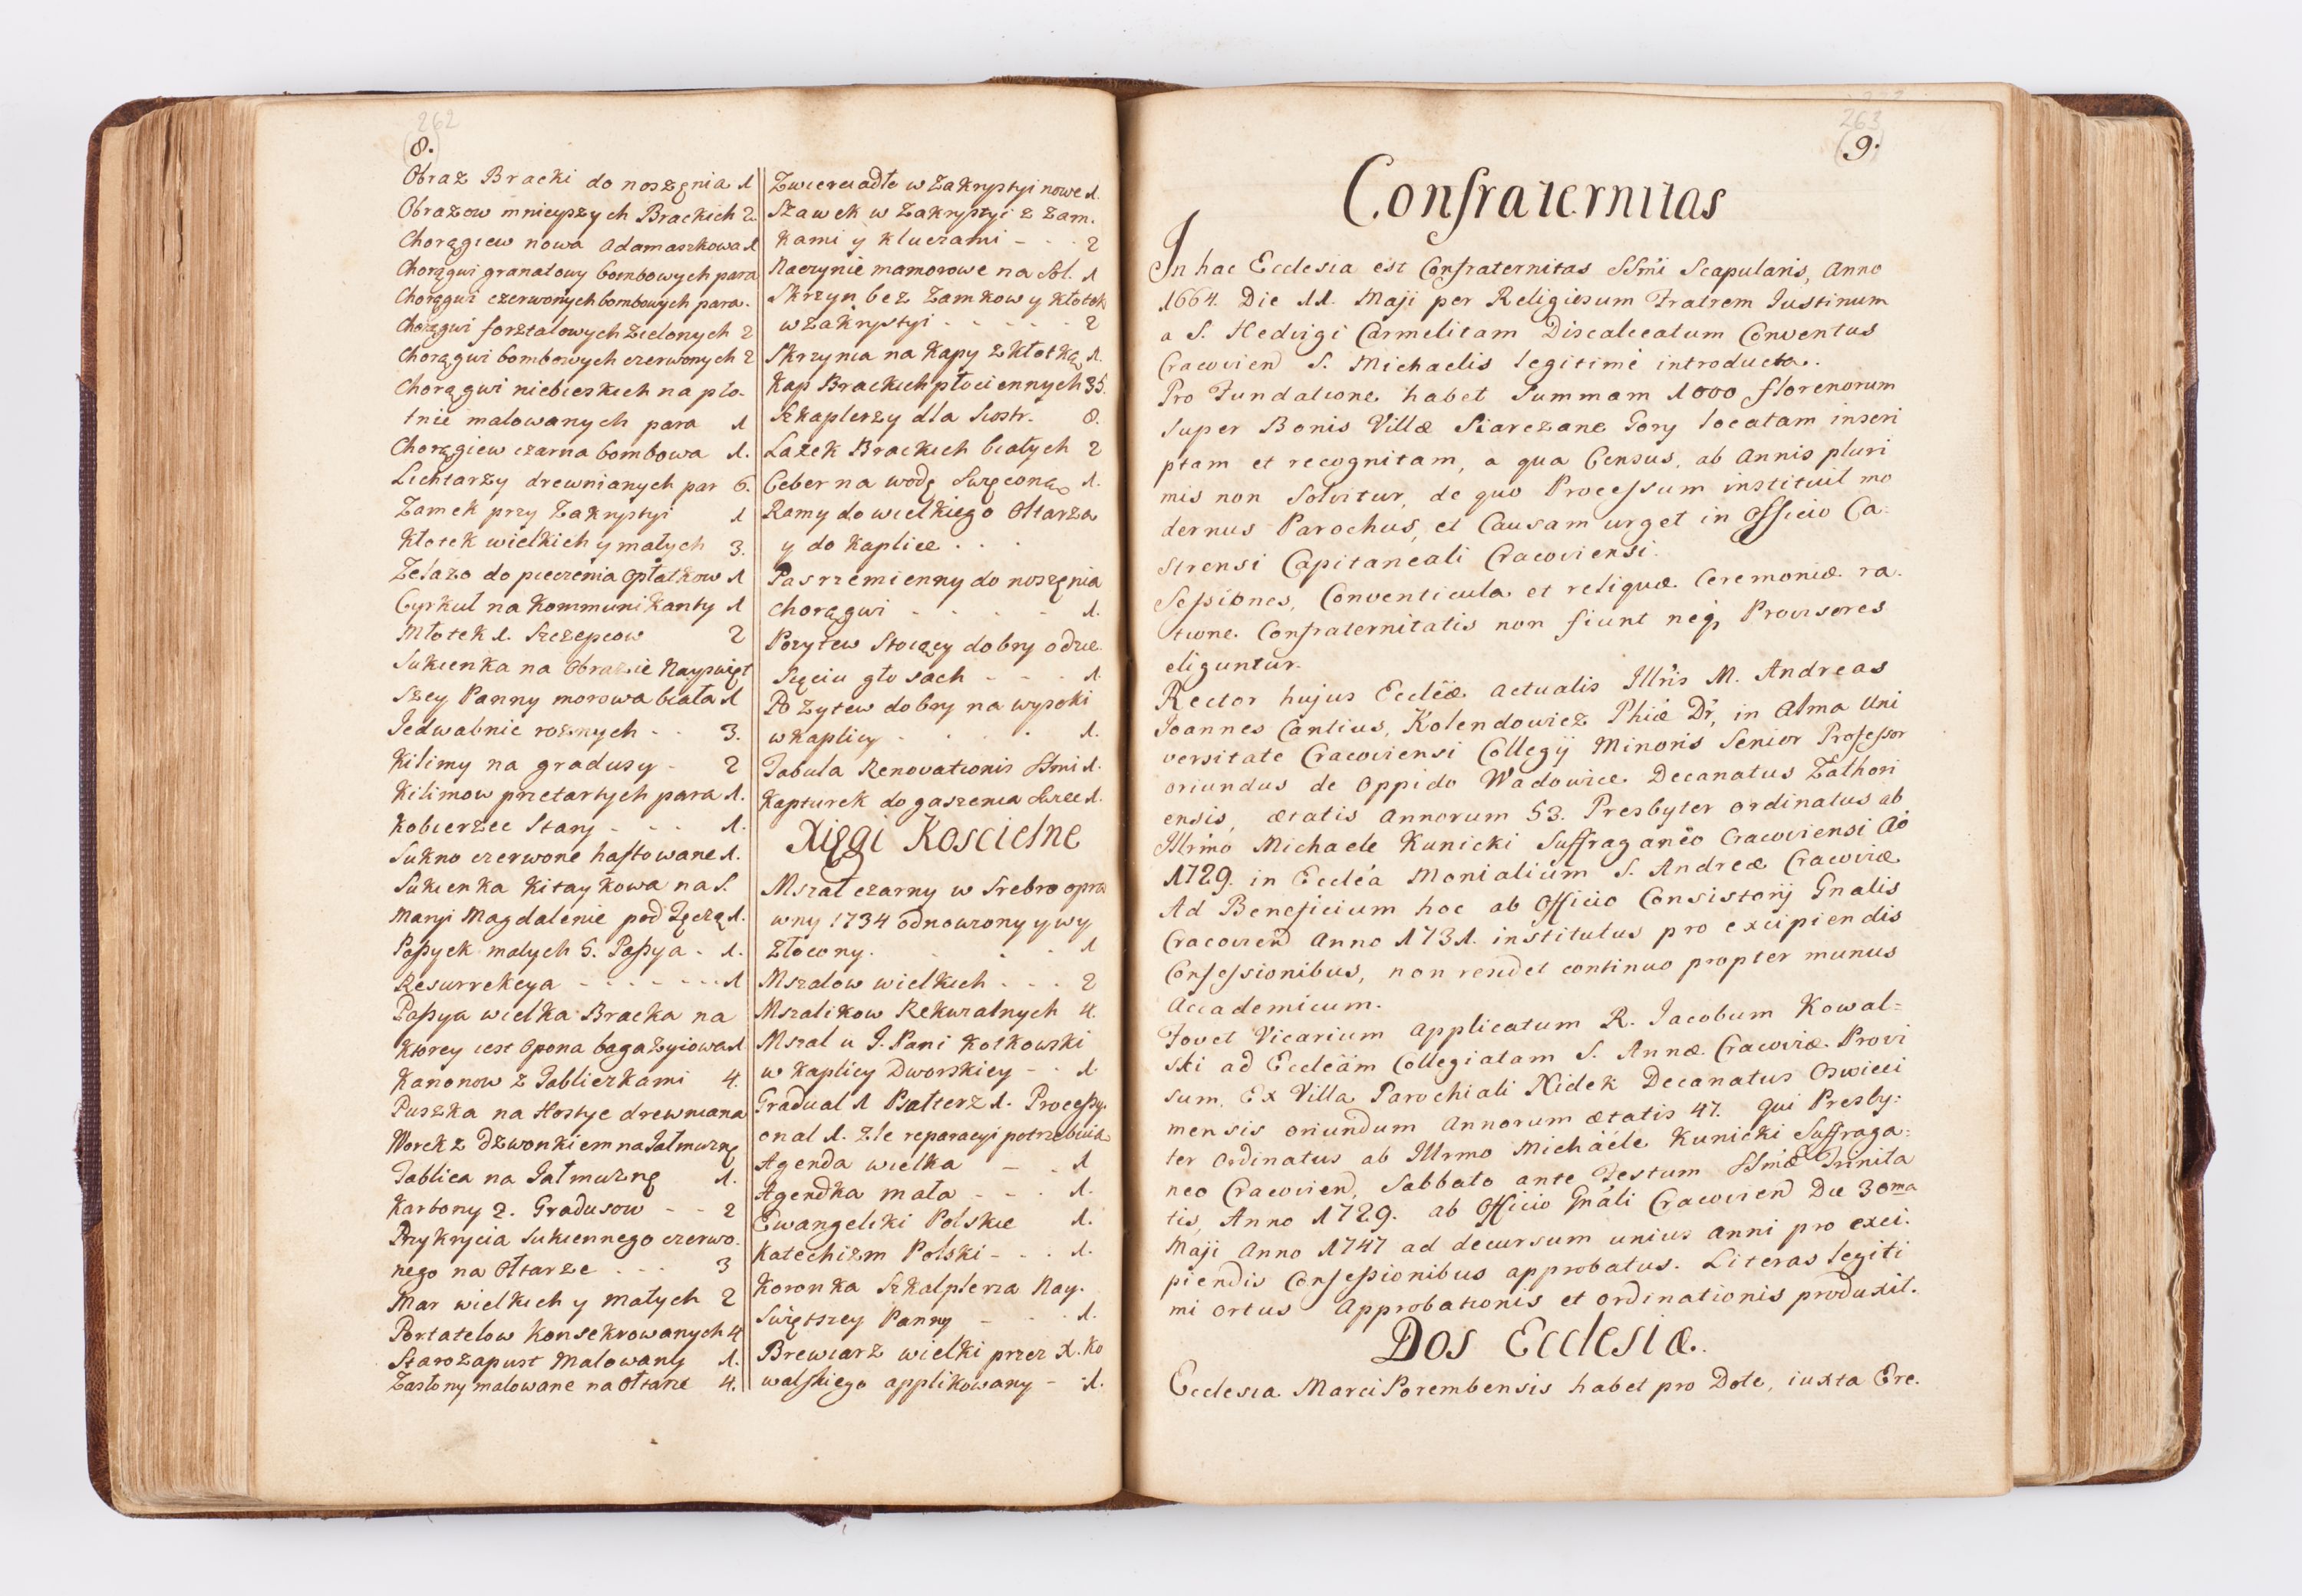 262
8.
Obraz Bracki do noszęnia 1
Obrazow mnieyszych Brackich 2.
Chorągiew nowa adamaszkowa 1
Chorągwi granatowy bombowych para
Chorągwi czerwonych bombowych para.
Chorągwi forsztalowych Zielonych 2
Chorągwi bombowych czerwonych 2
Chorągwi niebieskich na pło-
tnie malowanych para 1
Chorągiew czarna bombowa 1.
Lichtarzy drewnianych par 6.
Zamek przy Zakrystyi 1
Kłotek wielkich y małych 3.
Zelazo do pieczenia opłatkow 1
Cyrkuł na Kommunikanty 1
Młotek 1. Szczepcow 2
Sukienka na Obrazie Nayswięt
szey Panny morowa biała 1
Jedwabnic roznych - - 3.
Kilimy na gradusy - 2
Kilimow przetartych para 1.
Kobierzec Stary - - - 1.
Sukno czerwone haftowane 1.
Sukienka Kitaykowa na S.
Maryi Magdalenie pod Tęczą 1.
Paßyek malych 5. Paßya - 1.
Resurrekcya - - - - - - - 1
Paßya wielka Bracka na
Ktorey iest Opona bagazyiowa 1
Kanonow z Tabliczkami 4.
Puszka na Hostye drewniana
Worek z dzwonkiem na Jałmuznę
Tablica na Jałmuznę 1.
Karbony 2. Gradusow - - 2
Przykrycia Sukiennego czerwo.
nego na Ołtarze . - - 3
Mar wielkich y Małych 2
Portatelow Konsekrowanych 4
Starozapust Malowany 1.
Zasłony malowane na Ołtarze 4.
Zwierciadło w Zakrystyi nowe 1.
Szawek w Zakrystyi z zam.
kami y kluczami - - - 2
Naczynie mamorowe na Sol. 1
Skrzyn bez Zamkow y kłotek
w Zakrystyi - - - - - - 2
Skrzynia na Kapy z kłotką 1.
Kap Brackich płociennych 35.
Szkaplerzy dla Siostr. 8.
Lazek Brackich białych 2
Ceber na wodę Swięconą 1.
Ramy do wielkiego Ołtarza
y do Kaplice . . .
Pas rzemienny do noszęnia
chorągwi - - - - - 1.
Pozytew Stoiący dobry o dzie.
sięciu głosach - - - 1.
Pozytew dobry na wysoki
w Kaplicy - . . . . 1.
Tabula Renovationis SSmi 1.
Kapturek do gaszenia Swiec 1.
Xięgi Koscielne
Mszał czarny w Srebro opra
wny 1734 odnowiony y wy
złocony. . . . . 1
Mszalow wielkich - - - 2
Mszalikow Rekwialnych 4.
Mszal u J. Pani Kotkowski
w Kaplicy Dworskiey - - 1.
Gradual 1 Psalterz 1. Proceßy.
onal 1. Zle reparacyi potrzebuia
Agenda wielka - - 1
Agendka mala - - . 1.
Ewangeliki Polskie 1.
Katechizm Polski - - . 1.
Koronka Szkalpleria Nay.
Swiętszey Panny - - . 1.
Brewiarz wielki przez X. Ko
walskiego applikowany - - 1.
263
9.
Confraternitas
In hac Ecclesia est Confraternitas SSmi Scapularis, Anno
1664. Die 11. Maji per Religiosum Fratrem Iustinum
a S. Hedvigi Carmelitam Discalceatum Conventus
Cracovien S. Michaelis legitimè introducta.
Pro Fundatione habet Summam 1000 florenorum
super Bonis Villæ Siarczane Gory locatam inscri
ptam et recognitam, a qua Census, ab annis pluri
mis non Solvitur, de quo Processum instituit mo
dernus Parochus, et Causam urget in Officio Ca-
strensi Capitaneali Cracoviensi.
Seßiones, Conventicula et reliquæ Ceremoniæ ra.
tione Confraternitatis non fiunt neq Provisores
eliguntur.
Rector hujus Ecclæ actualis Illris M. Andreas
Joannes Cantius, Kolendowicz Phiæ Dr, in Alma Uni
versitate Cracoviensi Collegij Minoris Senior Professor
oriundus de oppido Wadowice Decanatus Zathori
ensis, ætatis annorum 53. Presbyter ordinatus ab
Illrmo Michaele Kunicki Suffraganeo Cracoviensi Ao
1729. in Eccléa Monialium S. Andreæ Cracoviæ
Ad Beneficium hoc ab Officio Consistorij Gnalis
Cracovien Anno 1731. institutus pro excipiendis
Confessionibus, non rendet continuo propter munus
Accademicum.
Fovet Vicarium applicatum R. Jacobum Kowal=
ski ad Eccleam Collegiatam S. Annæ Cracoviæ Provi
sum. Ex Villa Parochiali Nidek Decanatus Oswieci
mensis oriundum annorum ætatis 47. qui Presby:
ter ordinatus ab Illrmo Michäele Kunicki Suffraga:
neo Cracovien, Sabbato ante Festum SSmæ Trinita
tis, Anno 1729. ab Officio Gnali Cracovien Die 30ma
Maji Anno 1747 ad decursum unius anni pro exci.
piendis Confeßionibus approbatus. Literas legiti
mi ortus Approbationis et ordinationis produxit.
Dos Ecclesiæ.
Ecclesia Marci Porembensis habet pro Dote, iuxta Ere.